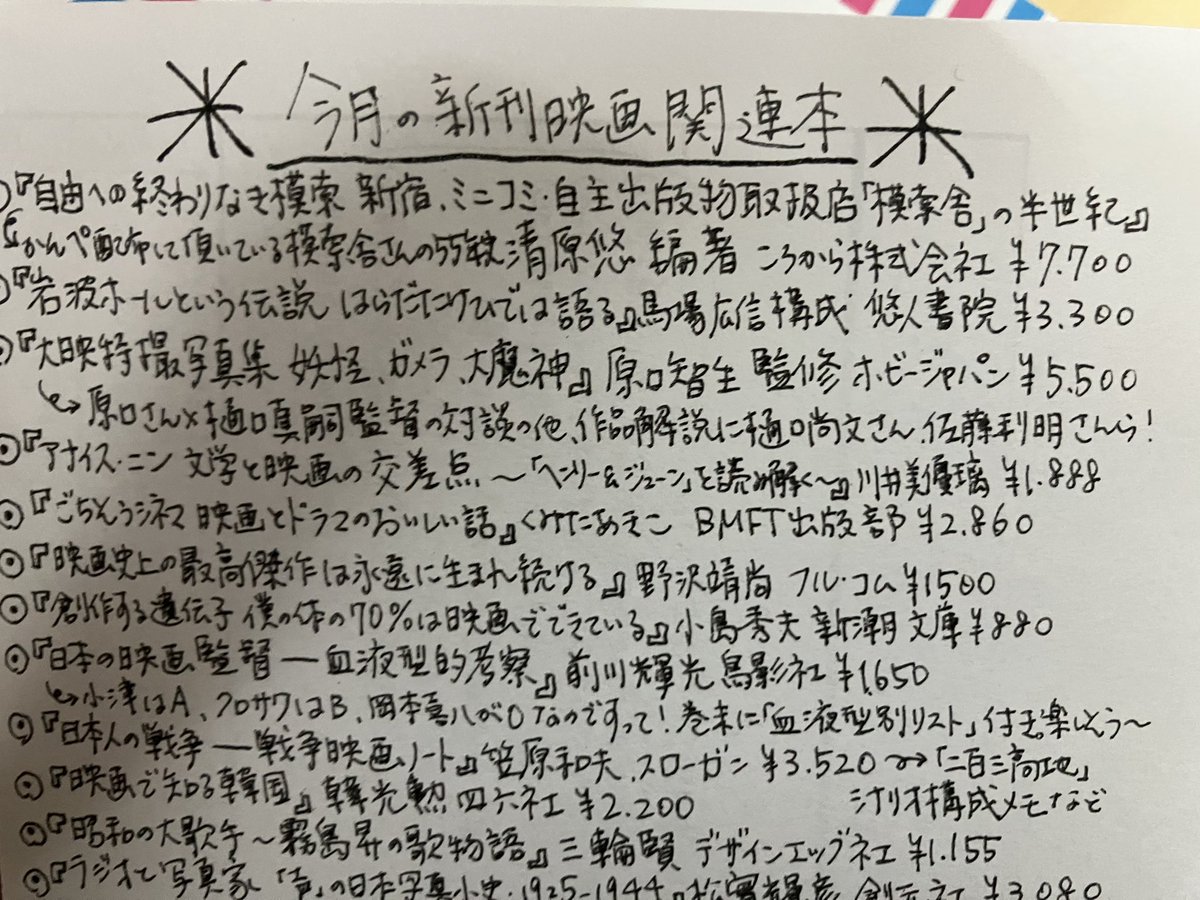 今月の新刊映画関連本
『自由への終わりなき模索 新宿、ミニコミ・自主出版物取扱店「模索舎」の半世紀』
かんぺ配布して頂いている模索舎さんの55年史 清原悠 編著 ころから株式会社 ¥7.700
『岩波ホールという伝説 はらだたけひでは語る』馬場広信構成 悠人書院 ¥3.300
『大映特撮写真集 妖怪、ガメラ、大魔神』原口智生 監修 ホビージャパン ¥5.500
↪原口さん×樋口真嗣監督の対談の他、作品解説に樋口尚文さん、佐藤利明さんら!
◉『アナイス・ニン 文学と映画の交差点 〜「ヘンリー&ジューン」を読み解く〜』川井美優璃 ¥1.888
◉『ごちそうシネマ 映画とドラマのおいしい話』くみたあえこ BMFT出版部 ¥2.860
◉『映画史上の最高傑作は永遠に生まれ続ける』野沢靖尚 フル・コム ¥1500
◉『創作する遺伝子 僕の体の70%は映画でできている』小島秀夫 新潮文庫 ¥880
◉『日本の映画監督 ー血液型的考察』前川輝光 鳥影社 ¥1.650
↪小津はA、クロサワはB、岡本喜八がOなのですって! 巻末に「血液型別リスト」付き。楽しそう〜
◉『日本人の戦争 ー戦争映画ノート』笠原和夫、スローガン ¥3.520 〜→「二百三高地」
シナリオ構成メモなど
◉『映画で知る韓国』韓光勲 四六社 ¥2.200
◉『昭和の大歌手〜霧島昇の歌物語』三輪賢 デザインエッグ社 ¥1.155
◉『ラジオと写真家「声」の日本写真小史・1925-1944』松實輝彦 創元社 ¥3.080